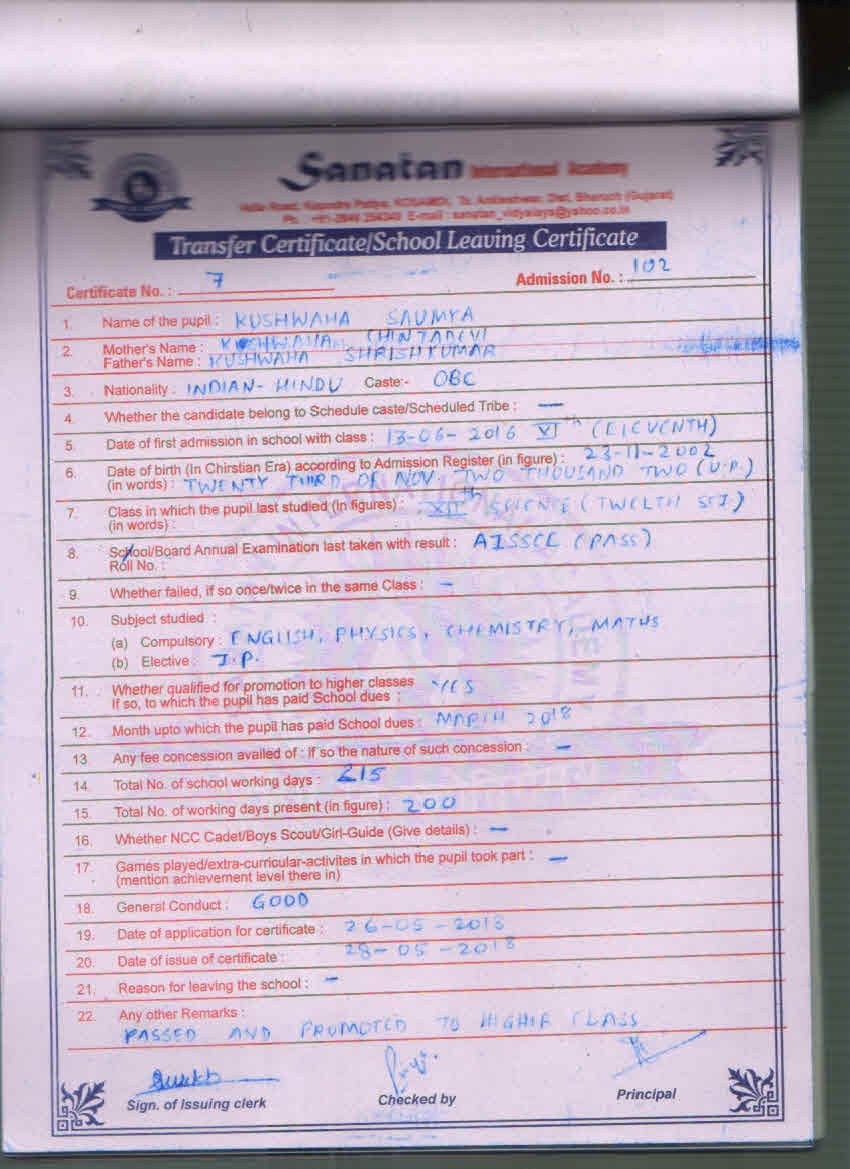 Sanatan International Academy
Valia Road, Kapodra Patiya, KOSAMDI, Ta. Ankleshwar, Dist. Bharuch (Gujarat)
E-mail : sanatan_vidyalaya@yahoo.co.in
Transfer Certificate/School Leaving Certificate
Certificate No. : 7 Admission No. : 102
1. Name of the pupil : KUSHWAHA SAUMYA
2. Mother's Name : KUSHWAHA CHINTADEVI
Father's Name : KUSHWAHA SHRISHKUMAR
3. Nationality : INDIAN - HINDU Caste:- OBC
4. Whether the candidate belong to Schedule caste/Scheduled Tribe : —
5. Date of first admission in school with class : 13-06-2016 XI th (ELEVENTH)
6. Date of birth (In Chirstian Era) according to Admission Register (in figure) : 23-11-2002
(in words) : TWENTY THIRD OF NOV. TWO THOUSAND TWO (U.P.)
7. Class in which the pupil last studied (In figures) : XII th SCIENCE (TWELTH SCI)
(in words) :
8. School/Board Annual Examination last taken with result : AISSCE (PASS)
Roll No. :
9. Whether failed, if so once/twice in the same Class : —
10. Subject studied :
(a) Compulsory : ENGLISH, PHYSICS, CHEMISTRY, MATHS
(b) Elective : I.P.
11. Whether qualified for promotion to higher classes YES
If so, to which the pupil has paid School dues :
12. Month upto which the pupil has paid School dues : MARCH 2018
13 Any fee concession availed of : if so the nature of such concession : —
14. Total No. of school working days : 215
15. Total No. of working days present (in figure) : 200
16. Whether NCC Cadet/Boys Scout/Girl-Guide (Give details) : —
17. Games played/extra-curricular-activites in which the pupil took part : —
(mention achievement level there in)
18. General Conduct : GOOD
19. Date of application for certificate : 26-05-2018
20. Date of issue of certificate : 28-05-2018
21. Reason for leaving the school : —
22. Any other Remarks :
PASSED AND PROMOTED TO HIGHER CLASS
Sign. of Issuing clerk Checked by Principal